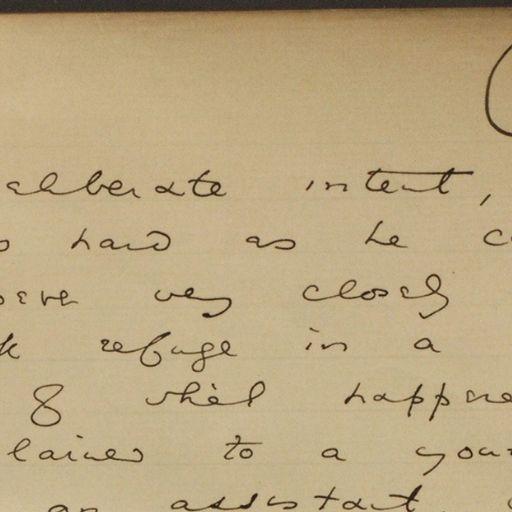 eliberate intent,
hard as he c
very closely
refuge in a
8 which happene
lained to a you
an assistant